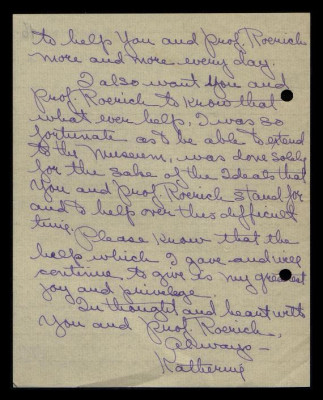 to help You and Prof. Roerich
more and more every day.
I also want You and
Prof. Roerich to know that
what ever help, I was so
fortunate as to be able to extend
to the Museum, was done solely
for the sake of the Ideals that
You and Prof. Roerich stand for
and to help over this difficult
time. Please know that the
help which I gave and will
continue to give is my greatest
joy and privilege.
In thought and heart with
You and Prof. Roerich,
Always -
Katherine